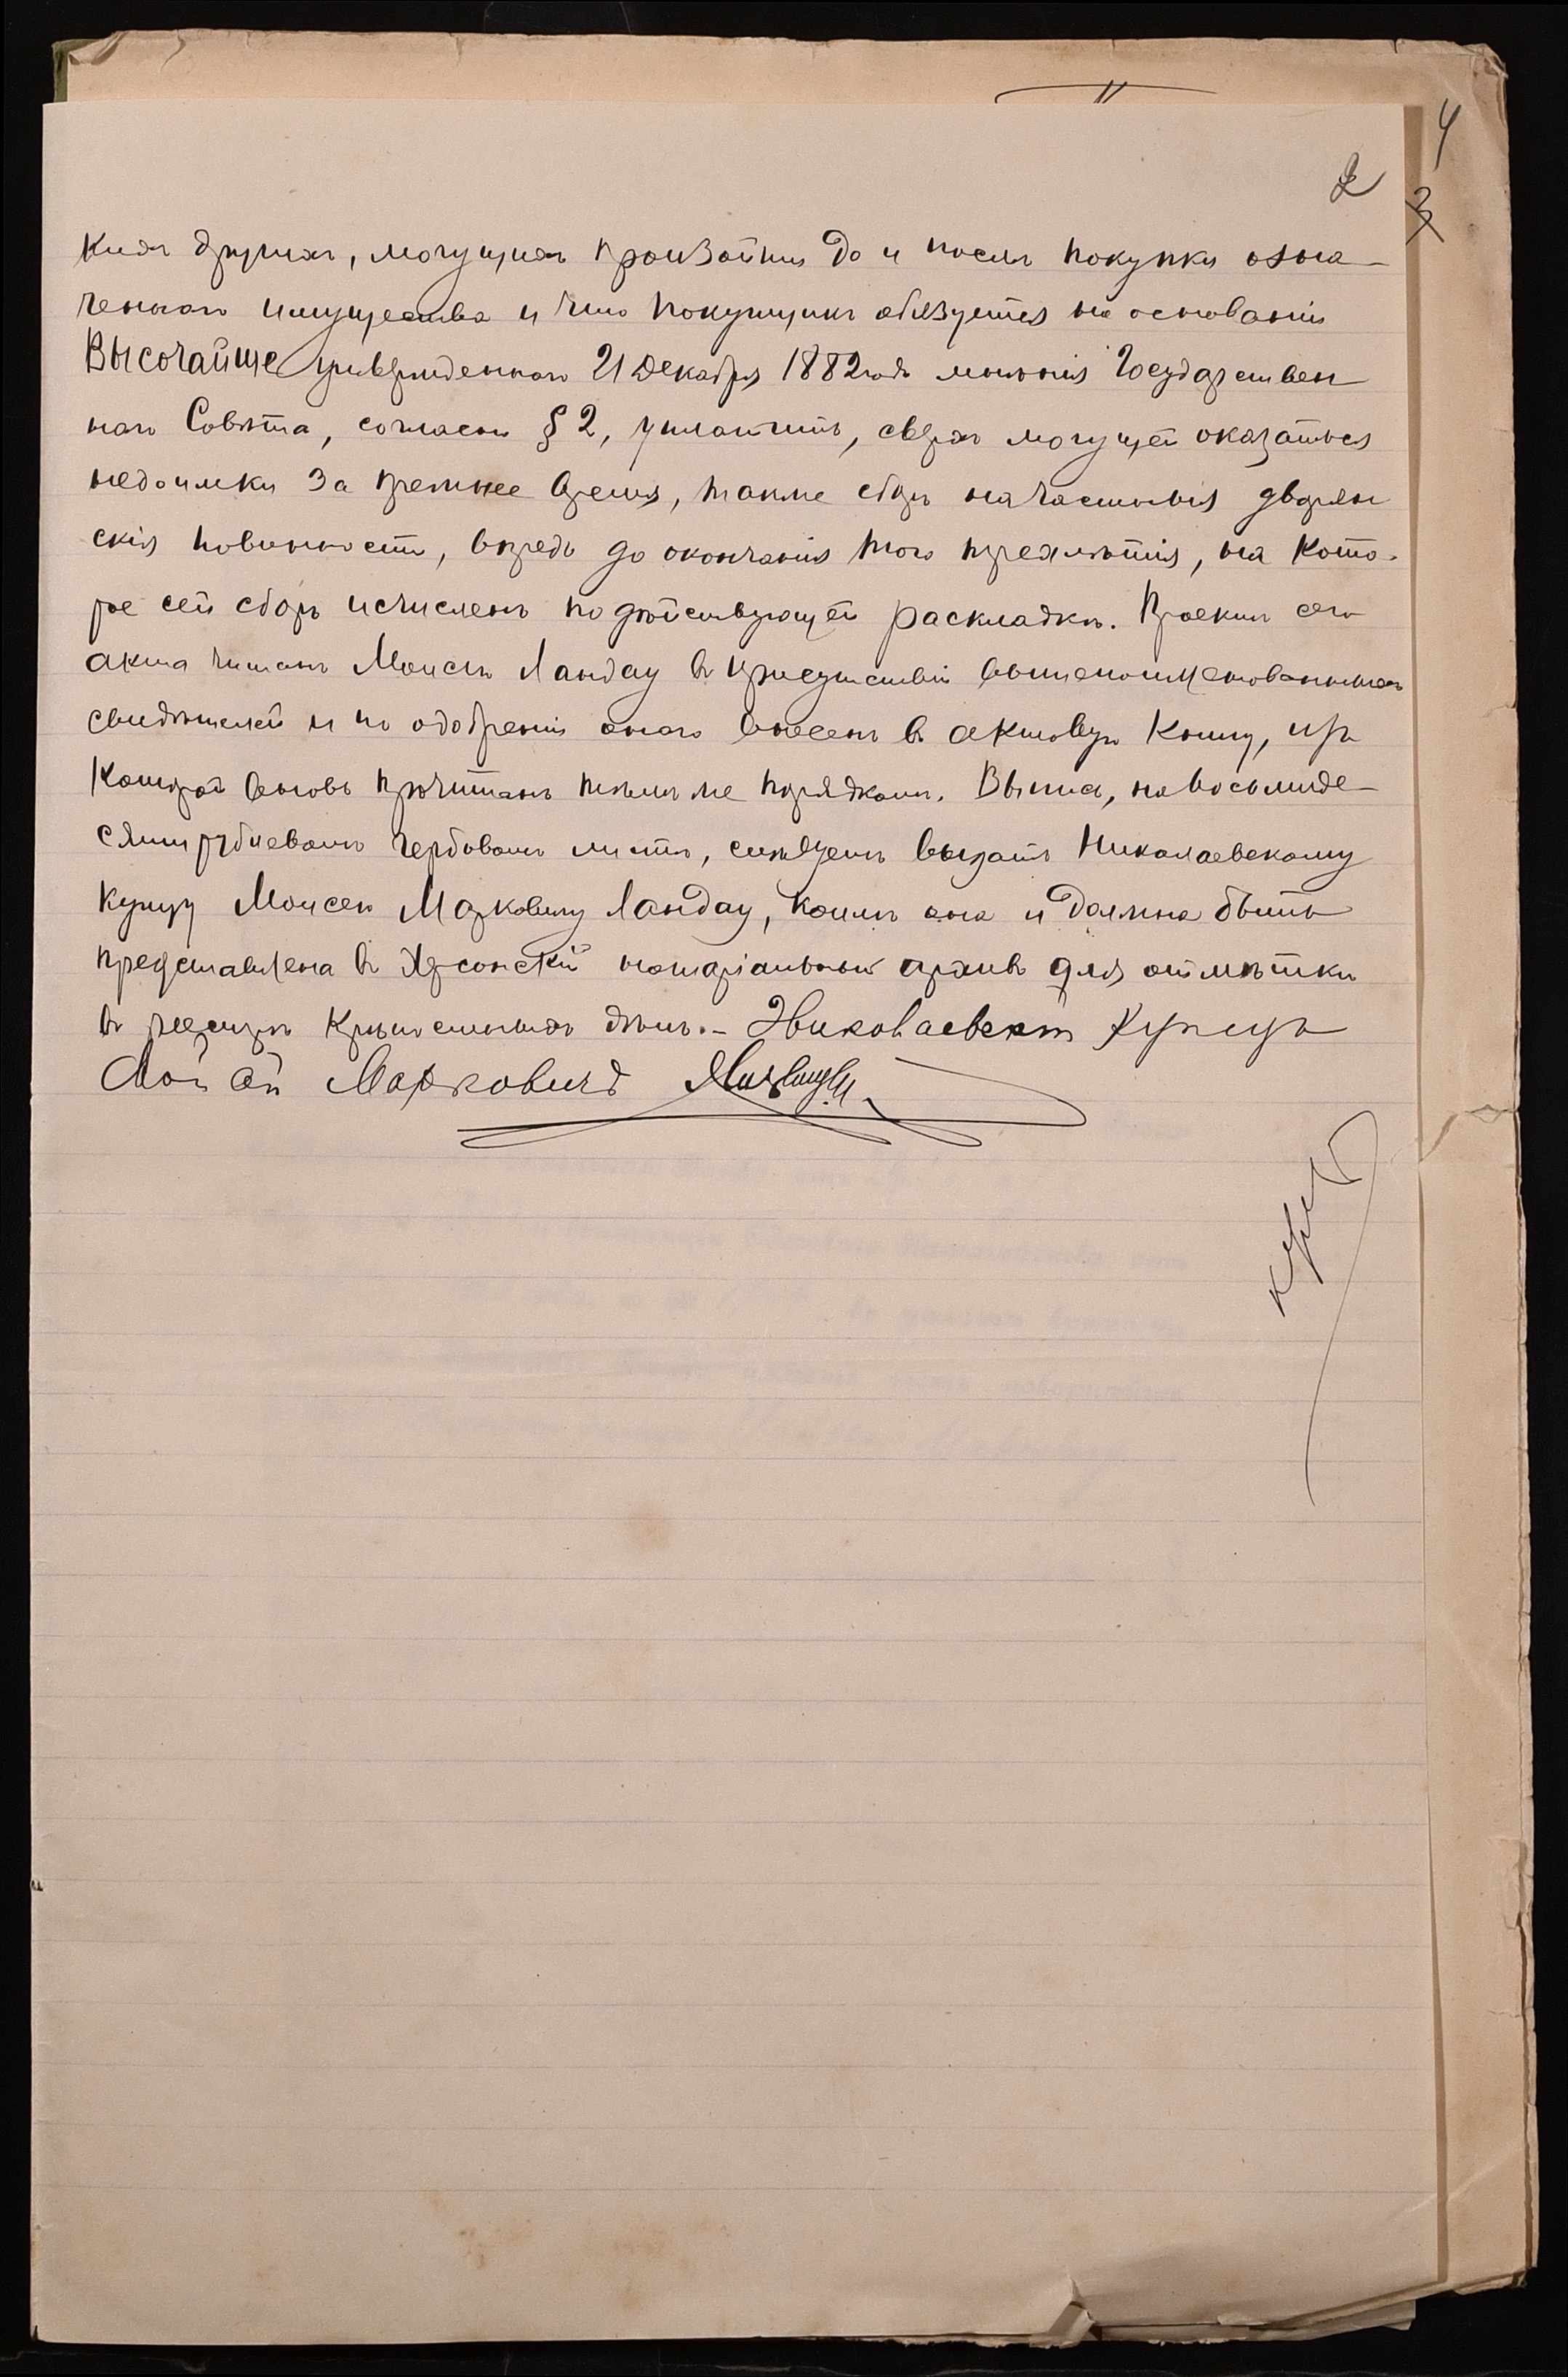 4
2
3
кихъ другихъ, могущихъ произойти до и послѣ покупки озна-
ченнаго имущества и что покупщикъ обязуется на основаніи
Высочайше утвержденнаго 21 Декабря 1882 года мнѣнія Государствен
наго Совѣта, согласно § 2, уплатить, сверхъ могущей оказаться
недоимки за прежнее время, также сборъ на частныя дворян
скія повинности, впредь до окончанія того трехлѣтія, на кото-
рое сей сборъ исчисленъ по дѣйствующей раскладкѣ. Проектъ сего
акта читанъ Моисею Ландау въ присутствіи вышепоименованныхъ
свидѣтелей и по одобреніи онаго внесенъ въ актовую книгу, изъ
которой вновь прочитанъ тѣмъ же порядкомъ. Выпись, на восьмиде-
сятирублевомъ гербовомъ листѣ, слѣдуетъ выдать Николаевскому
купцу Моисею Марковичу Ландау, коимъ она и должна быть
представлена въ Херсонскій нотаріальный архивъ для отмѣтки
въ реестрѣ крѣпостныхъ дѣлъ.- Николаевскій Купецъ
Мойсей Марковичъ